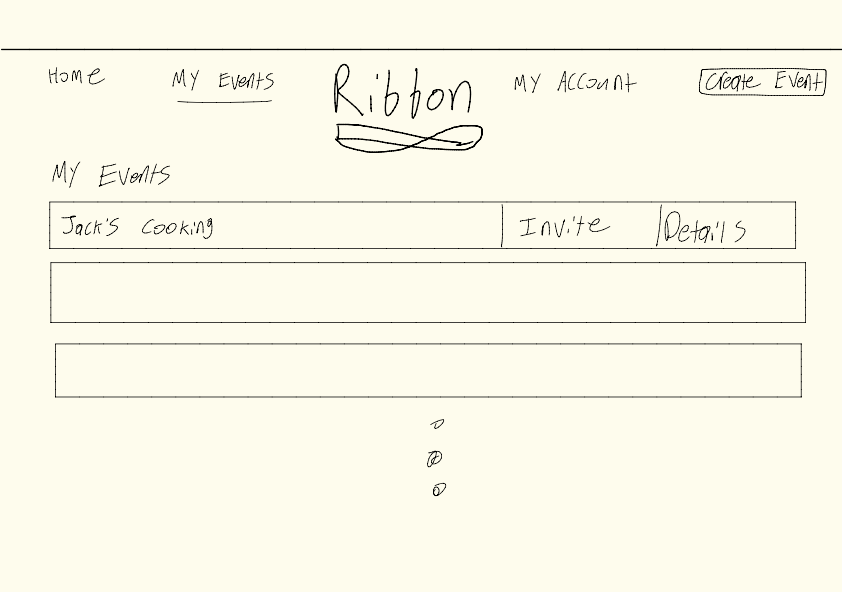 Home My Events Ribbon My Account Create Event
My Events
Jack's Cooking Invite Details